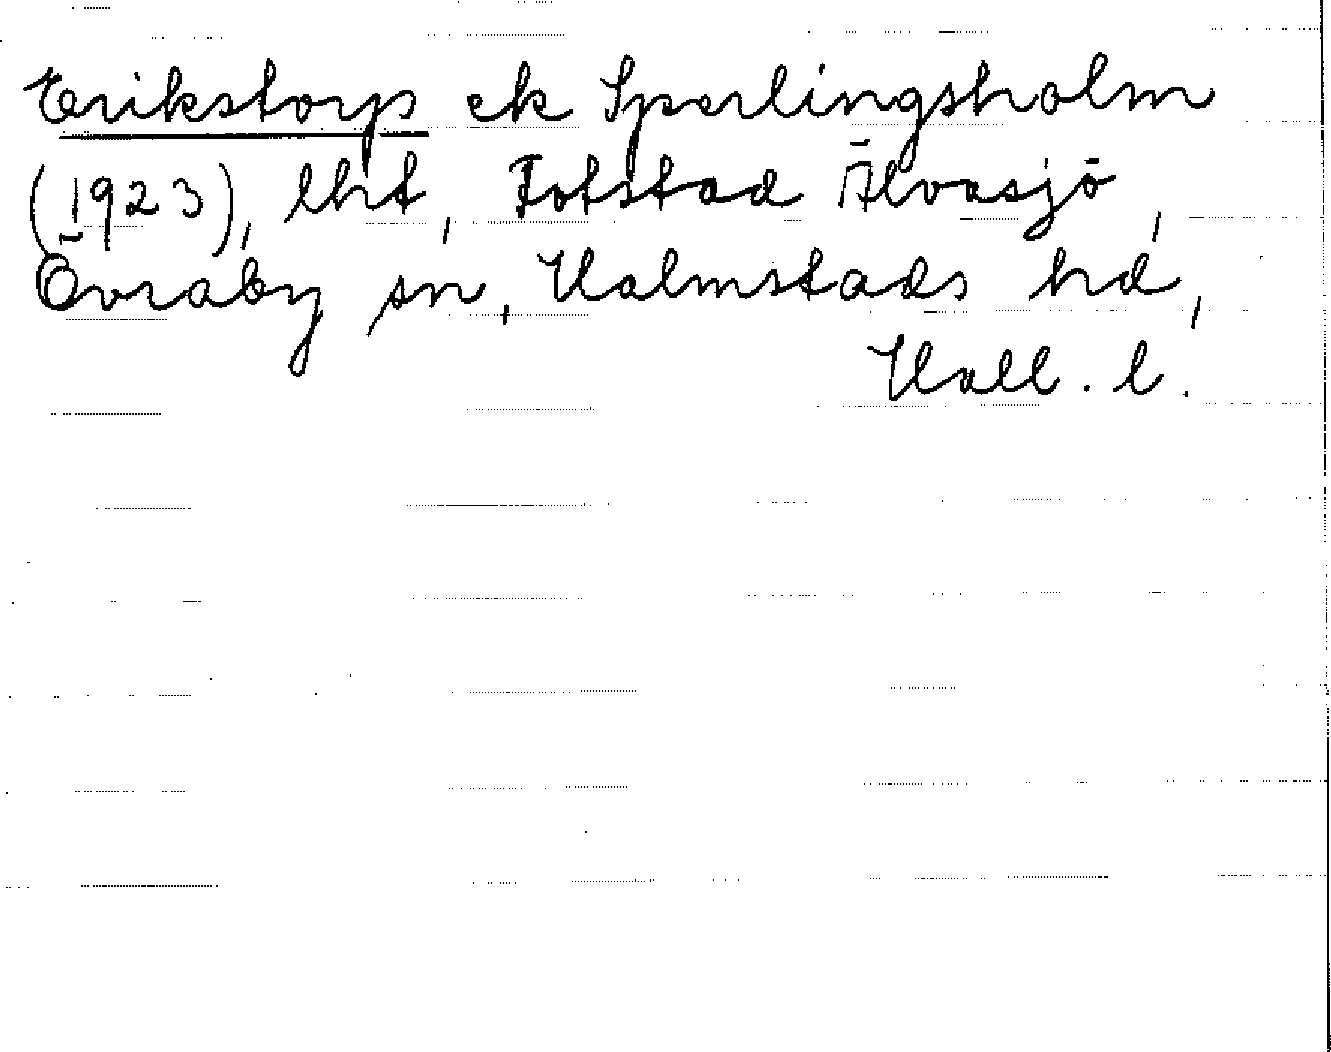 Erikstorp ek Sperlingsholm
(1923), lht, Fotstad Älvasjö,
Övraby sn, Halmstads hd,
Hall. l.